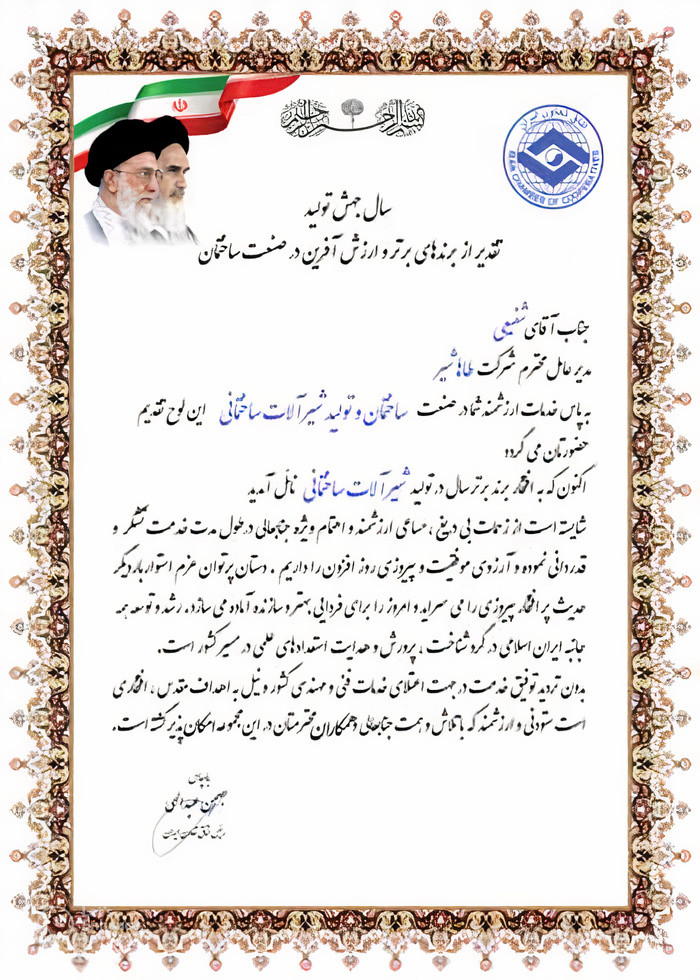 بسم الله الرحمن الرحیم
IRAN CHAMBER OF COOPERATIVES
سال جهش تولید
تقدیر از برندهای برتر و ارزش آفرین در صنعت ساختمان
جناب آقای شفیعی
مدیر عامل محترم شرکت طاها شیر
به پاس خدمات ارزشمند شما در صنعت ساختمان و تولید شیرآلات ساختمانی این لوح تقدیم
حضورتان می گردد
اکنون که به افتخار برند برتر سال در تولید شیرآلات ساختمانی نائل آمدید
شایسته است از زحمات بی دریغ ، مساعی ارزشمند و اهتمام ویژه جنابعالی در طول مدت خدمت تشکر و
قدردانی نموده و آرزوی موفقیت و پیروزی روز افزون را داریم . دستان پرتوان عزم استوار بار دیگر
حدیث پر افتخار پیروزی را می سراید و امروز را برای فردایی بهتر و سازنده آماده می سازد. رشد و توسعه همه
جانبه ایران اسلامی در گرو شناخت ، پرورش و هدایت استعدادهای علمی در مسیر کشور است.
بدون تردید توفیق خدمت در جهت اعتلای خدمات فنی و مهندی کشور و نیل به اهداف مقدس ، افتخاری
است ستودنی و ارزشمند که با تلاش و همت جنابعالی و همکاران محترمتان در این مجموعه امکان پذیر گشته است.
با سپاس
بهمن عبدالهی